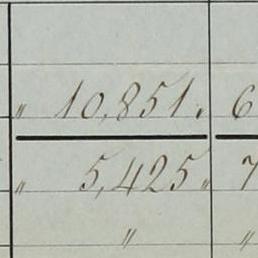 " 10,851. 6
" 5,425 " 7
" "